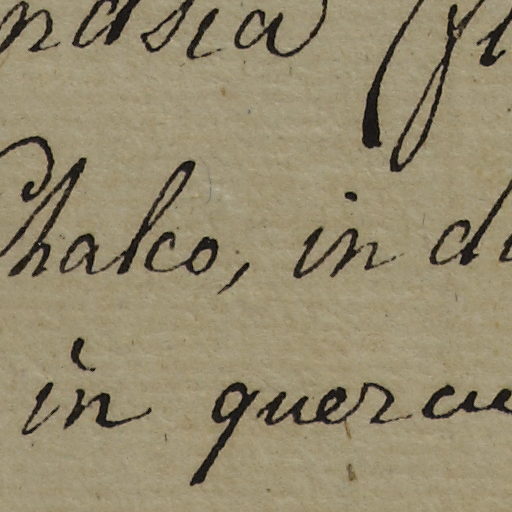 ndsia (fl
Chalco, in di
in quercu